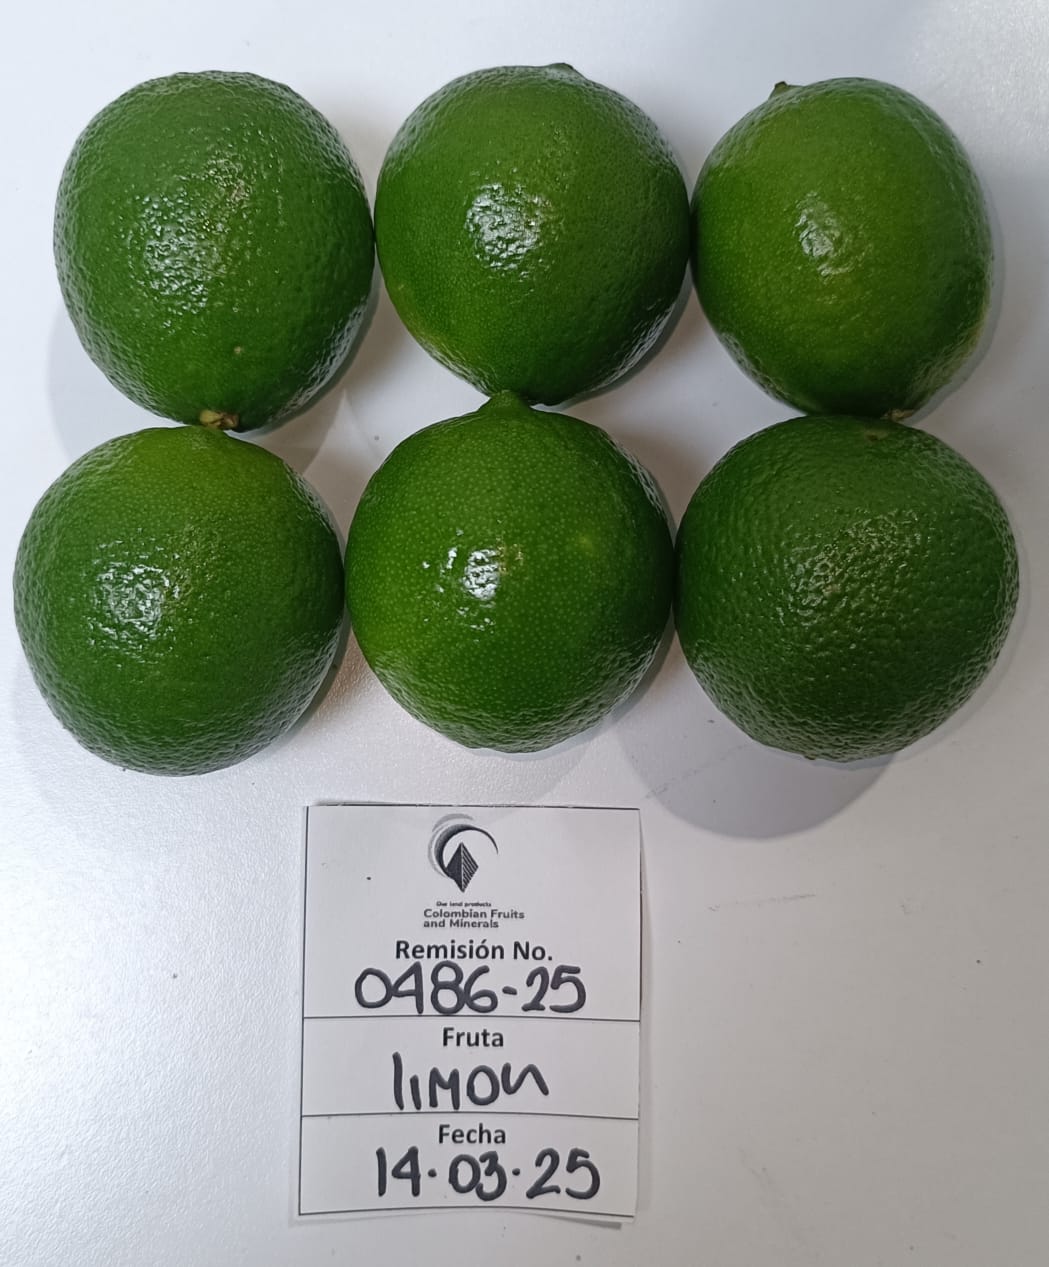 Our land products
Colombian Fruits
and Minerals
Remisión No.
0486-25
Fruta
limon
Fecha
14.03.25